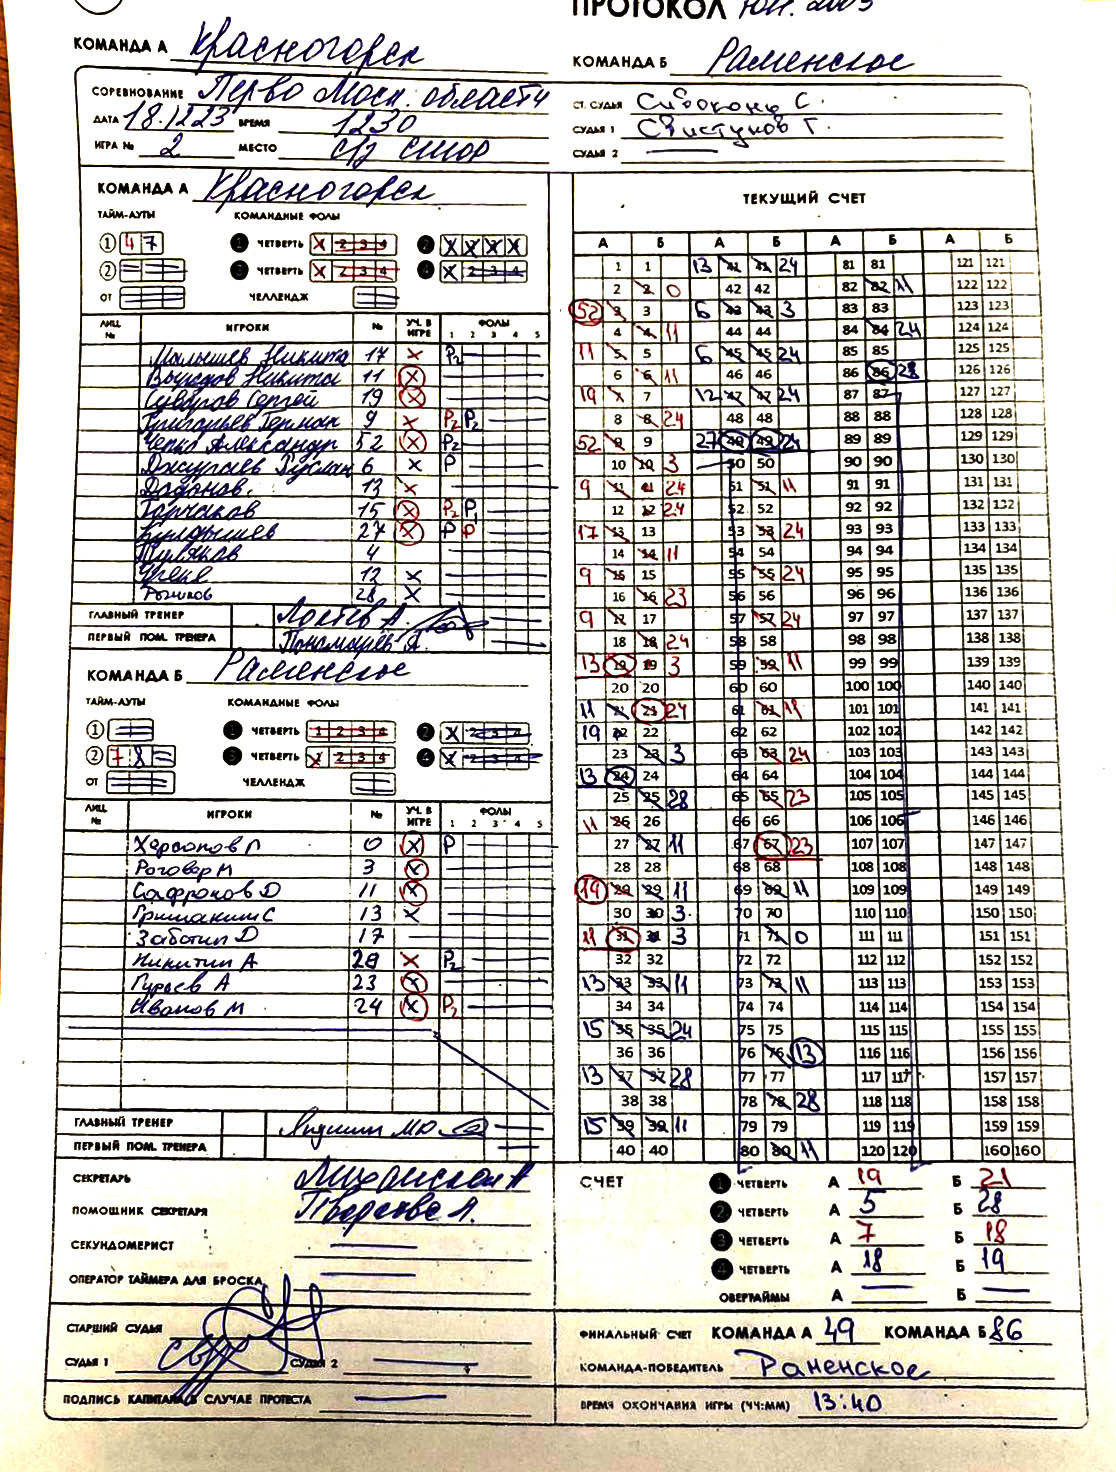 ПРОТОКОЛ Юн. 2009
КОМАНДА А Красногорск
КОМАНДА Б Раменское
СОРЕВНОВАНИЕ Перво Моск. области
ДАТА 18.12.23 ВРЕМЯ 1230
ИГРА № 2 МЕСТО
СТ. СУДЬЯ
СУДЬЯ 1 Свистунов Г.
СУДЬЯ 2 —
КОМАНДА А Красногорск
ТАЙМ-АУТЫ КОМАНДНЫЕ ФОЛЫ
1 4 7 1 ЧЕТВЕРТЬ X 2 3 4 2 X X X X
2 3 ЧЕТВЕРТЬ X 2 3 4 4 X 2 3 4
ОТ ЧЕЛЛЕНДЖ
ЛИЦ. № ИГРОКИ № УЧ. В ИГРЕ ФОЛЫ 1 2 3 4 5
Малышев Никита 17 X P2
Никита 11 X
Суворов Сергей 19 X
Григорьев Герман 9 X P2 P2
Александр 52 X P2
6 X P
13 X
Горчаков 15 X P2 P1
27 X P P
4
12 X
28 X
ГЛАВНЫЙ ТРЕНЕР Локтев А.
ПЕРВЫЙ ПОМ. ТРЕНЕРА Пономарёв А.
КОМАНДА Б Раменское
ТАЙМ-АУТЫ КОМАНДНЫЕ ФОЛЫ
1 1 ЧЕТВЕРТЬ 1 2 3 4 2 X 2 3 4
2 7 8 3 ЧЕТВЕРТЬ X 2 3 4 4 X 2 3 4
ОТ ЧЕЛЛЕНДЖ
ЛИЦ. № ИГРОКИ № УЧ. В ИГРЕ ФОЛЫ 1 2 3 4 5
0 X P
3 X
Сафронов Д 11 X
Гришакин С 13 X
Заботин Д 17
Никитин А 28 X P2
Гуреев А 23 X
Иванов М 24 X P2
ГЛАВНЫЙ ТРЕНЕР
ПЕРВЫЙ ПОМ. ТРЕНЕРА
СЕКРЕТАРЬ
ПОМОЩНИК СЕКРЕТАРЯ
СЕКУНДОМЕРИСТ —
ОПЕРАТОР ТАЙМЕРА ДЛЯ БРОСКА —
СТАРШИЙ СУДЬЯ
СУДЬЯ 1 СУДЬЯ 2
ПОДПИСЬ КАПИТАНА В СЛУЧАЕ ПРОТЕСТА —
ТЕКУЩИЙ СЧЕТ
А Б А Б А Б А Б
1 1 13 41 41 24 81 81 121 121
2 2 0 42 42 82 82 11 122 122
52 3 3 6 43 43 3 83 83 123 123
4 4 11 44 44 84 84 24 124 124
11 5 5 6 45 45 24 85 85 125 125
6 6 11 46 46 86 86 28 126 126
19 7 7 12 47 47 24 87 87 127 127
8 8 24 48 48 88 88 128 128
52 9 9 27 49 49 24 89 89 129 129
10 10 3 50 50 90 90 130 130
9 11 11 24 51 51 11 91 91 131 131
12 12 24 52 52 92 92 132 132
17 13 13 53 53 24 93 93 133 133
14 14 11 54 54 94 94 134 134
9 15 15 55 55 24 95 95 135 135
16 16 23 56 56 96 96 136 136
9 17 17 57 57 24 97 97 137 137
18 18 24 58 58 98 98 138 138
13 19 19 3 59 59 11 99 99 139 139
20 20 60 60 100 100 140 140
11 21 21 24 61 61 11 101 101 141 141
19 22 22 62 62 102 102 142 142
23 23 3 63 63 24 103 103 143 143
13 24 24 64 64 104 104 144 144
25 25 28 65 65 23 105 105 145 145
11 26 26 66 66 106 106 146 146
27 27 11 67 67 23 107 107 147 147
28 28 68 68 108 108 148 148
19 29 29 11 69 69 11 109 109 149 149
30 30 3 70 70 110 110 150 150
11 31 31 3 71 71 0 111 111 151 151
32 32 72 72 112 112 152 152
13 33 33 11 73 73 11 113 113 153 153
34 34 74 74 114 114 154 154
15 35 35 24 75 75 115 115 155 155
36 36 76 76 13 116 116 156 156
13 37 37 28 77 77 117 117 157 157
38 38 78 78 28 118 118 158 158
15 39 39 11 79 79 119 119 159 159
40 40 80 80 11 120 120 160 160
СЧЕТ 1 ЧЕТВЕРТЬ А 19 Б 21
2 ЧЕТВЕРТЬ А 5 Б 28
3 ЧЕТВЕРТЬ А 7 Б 18
4 ЧЕТВЕРТЬ А 18 Б 19
ОВЕРТАЙМЫ А — Б —
ФИНАЛЬНЫЙ СЧЕТ КОМАНДА А 49 КОМАНДА Б 86
КОМАНДА-ПОБЕДИТЕЛЬ Раменское
ВРЕМЯ ОКОНЧАНИЯ ИГРЫ (ЧЧ:ММ) 13:40